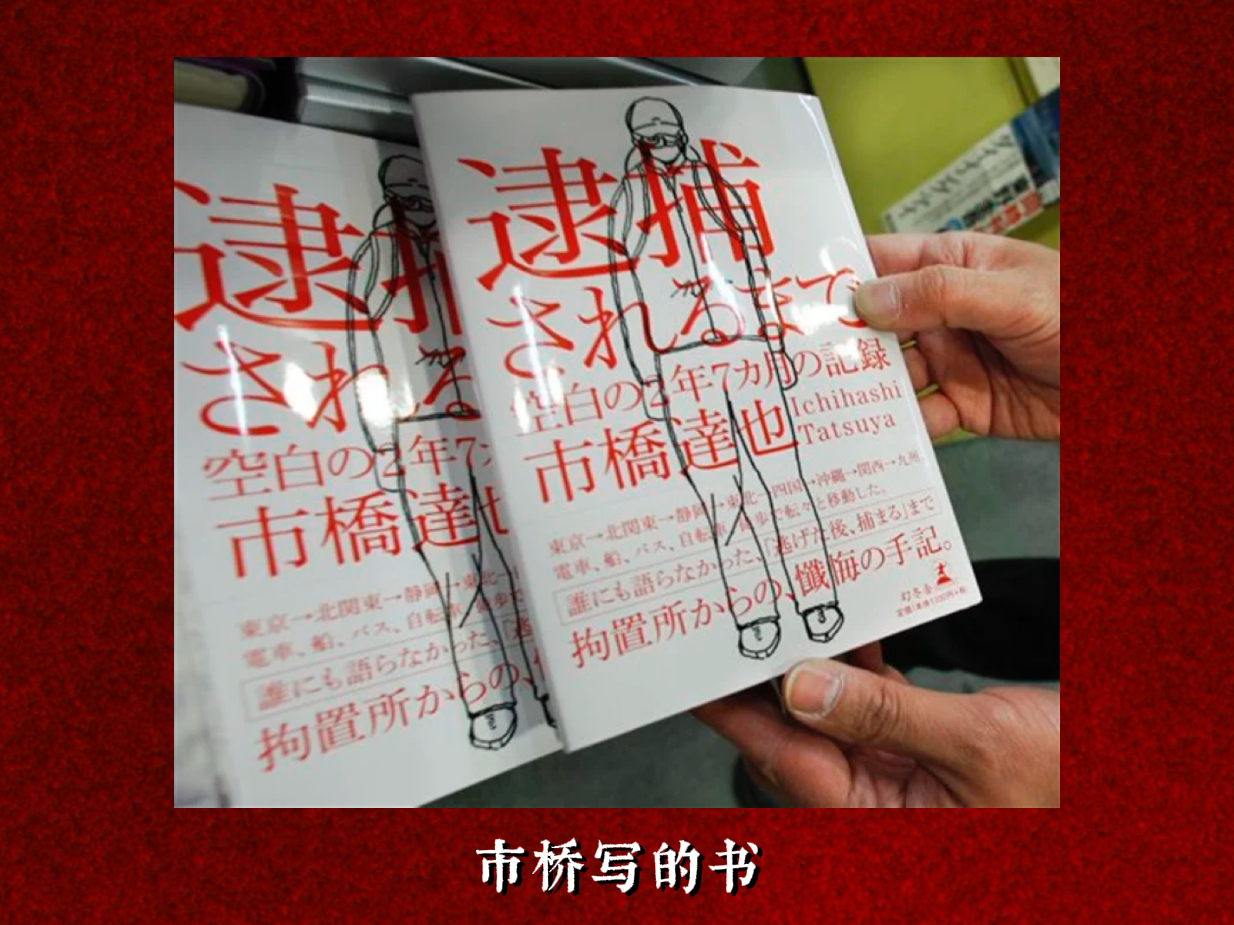 逮捕
されるまで
空白の2年7カ月の記録
市橋達也
Ichihashi
Tatsuya
東京→北関東→静岡→東北→四国→沖縄→関西→九州。
電車、船、バス、自転車、徒歩で転々と移動した。
誰にも語らなかった、「逃げた後、捕まる」まで
拘置所からの、懺悔の手記。
幻冬舎
逮捕
される
空白の2年7
市橋達也
東京→北関東→静岡→東北
電車、船、バス、自転車、徒歩で
誰にも語らなかった、
拘置所からの、
市桥写的书